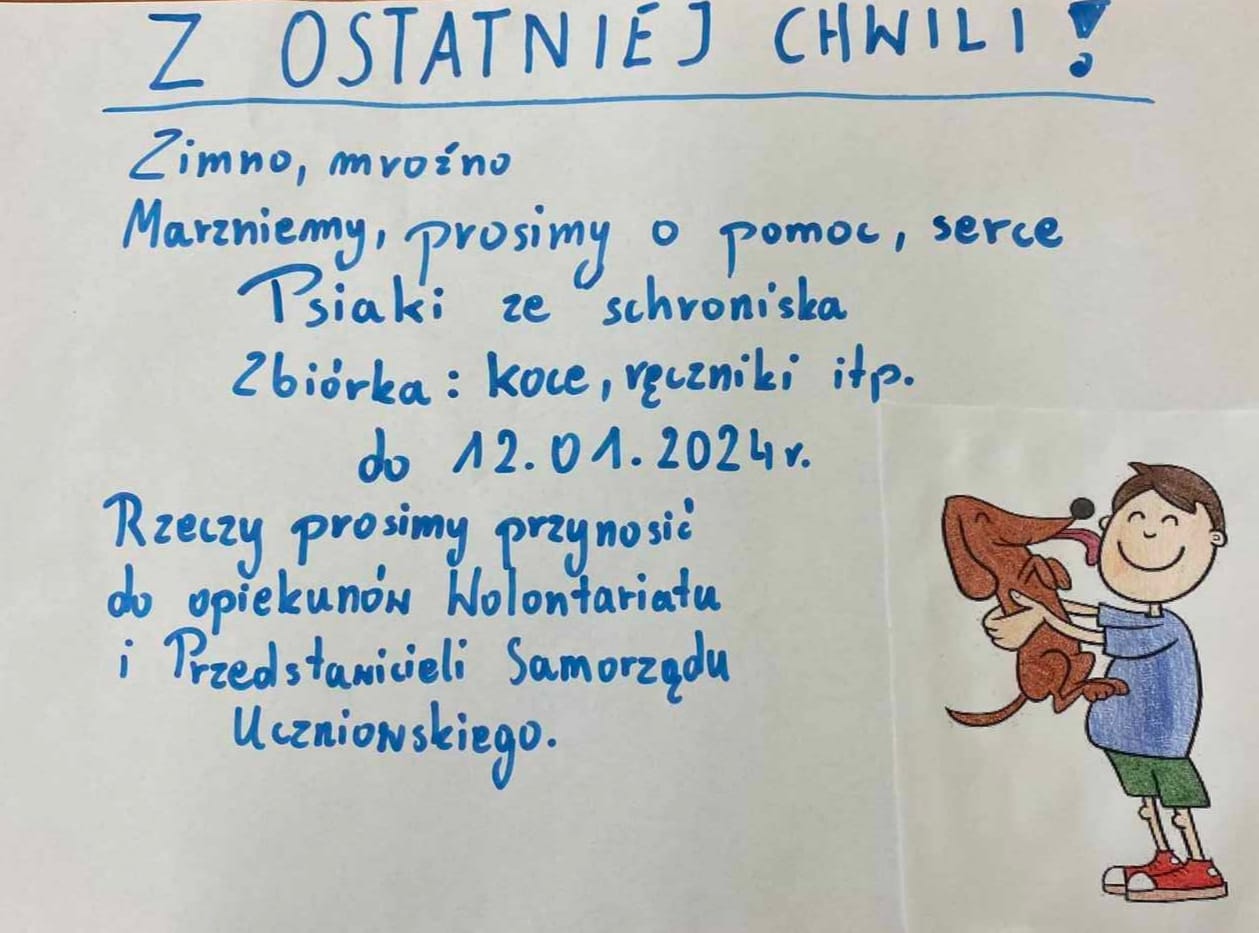 Z OSTATNIEJ CHWILI!
Zimno, mroźno
Marzniemy, prosimy o pomoc, serce
Psiaki ze schroniska
Zbiórka: koce, ręczniki itp.
do 12.01.2024r.
Rzeczy prosimy przynosić
do opiekunów Wolontariatu
i Przedstawicieli Samorządu
Uczniowskiego.